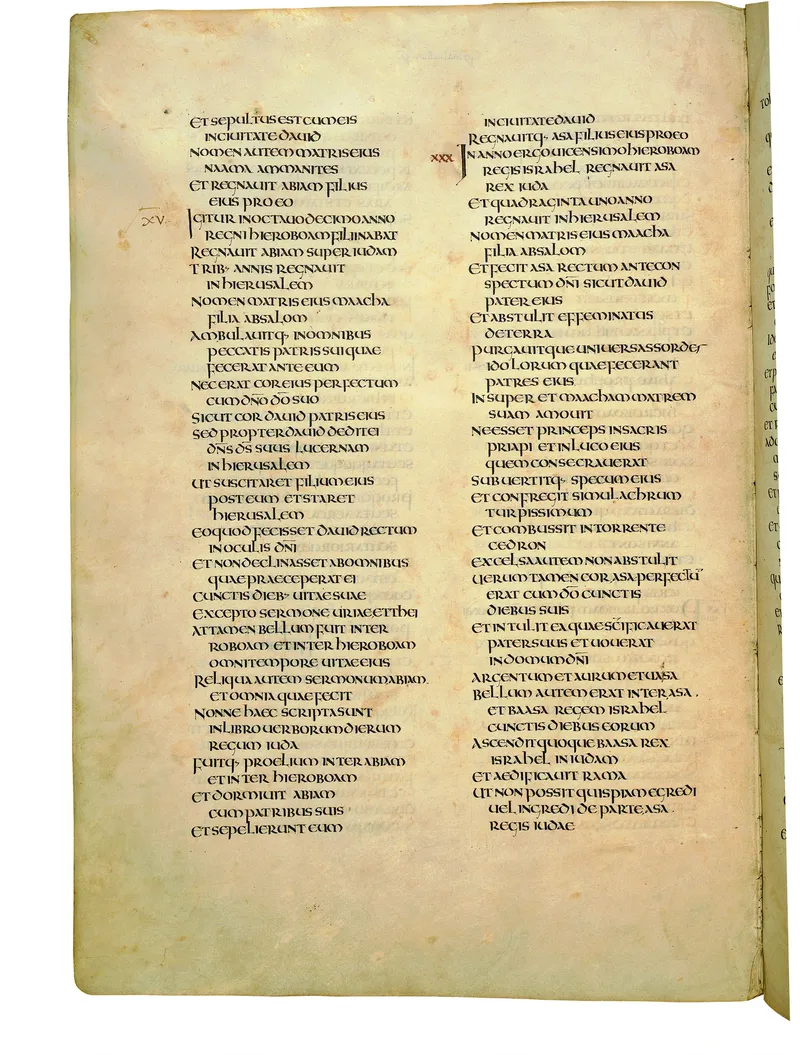 ET SEPULTUS EST CUM EIS
IN CIUITATE DAUID
NOMEN AUTEM MATRIS EIUS
NAAMA AMMANITES
ET REGNAUIT ABIAM FILIUS
EIUS PRO EO
XV. IGITUR IN OCTAUODECIMO ANNO
REGNI HIEROBOAM FILII NABAT
REGNAUIT ABIAM SUPER IUDAM
TRIB· ANNIS REGNAUIT
IN HIERUSALEM
NOMEN MATRIS EIUS MAACHA
FILIA ABSALOM
AMBULAUITQ· IN OMNIBUS
PECCATIS PATRIS SUI QUAE
FECERAT ANTE EUM
NEC ERAT COR EIUS PERFECTUM
CUM DÑO DŌ SUO
SICUT COR DAUID PATRIS EIUS
SED PROPTER DAUID DEDIT EI
DÑS DS̄ SUUS LUCERNAM
IN HIERUSALEM
UT SUSCITARET FILIUM EIUS
POST EUM ET STARET
HIERUSALEM
EO QUOD FECISSET DAUID RECTUM
IN OCULIS DÑI
ET NON DECLINASSET AB OMNIBUS
QUAE PRAECEPERAT EI
CUNCTIS DIEB· UITAE SUAE
EXCEPTO SERMONE URIAE ETTHEI
ATTAMEN BELLUM FUIT INTER
ROBOAM ET INTER HIEROBOAM
OMNI TEMPORE UITAE EIUS
RELIQUA AUTEM SERMONUM ABIAM
ET OMNIA QUAE FECIT
NONNE HAEC SCRIPTA SUNT
IN LIBRO UERBORUM DIERUM
REGUM IUDA
FUITQ· PROELIUM INTER ABIAM
ET INTER HIEROBOAM
ET DORMIUIT ABIAM
CUM PATRIBUS SUIS
ET SEPELIERUNT EUM
IN CIUITATE DAUID
REGNAUITQ· ASA FILIUS EIUS PRO EO
XXX IN ANNO ERGO UICENSIMO HIEROBOAM
REGIS ISRAHEL REGNAUIT ASA
REX IUDA
ET QUADRAGINTA UNO ANNO
REGNAUIT IN HIERUSALEM
NOMEN MATRIS EIUS MAACHA
FILIA ABSALOM
ET FECIT ASA RECTUM ANTE CON
SPECTUM DÑI SICUT DAUID
PATER EIUS
ET ABSTULIT EFFEMINATUS
DE TERRA
PURGAUITQUE UNIUERSAS SORDES
IDOLORUM QUAE FECERANT
PATRES EIUS
INSUPER ET MAACHAM MATREM
SUAM AMOUIT
NE ESSET PRINCEPS IN SACRIS
PRIAPI ET IN LUCO EIUS
QUEM CONSECRAUERAT
SUBUERTITQ· SPECUM EIUS
ET CONFREGIT SIMULACHRUM
TURPISSIMUM
ET COMBUSSIT IN TORRENTE
CEDRON
EXCELSA AUTEM NON ABSTULIT
UERUM TAMEN COR ASA PERFECTŪ
ERAT CUM DŌ CUNCTIS
DIEBUS SUIS
ET INTULIT EA QUAE SC̄IFICAUERAT
PATER SUUS ET UOUERAT
IN DOMUM DÑI
ARGENTUM ET AURUM ET UASA
BELLUM AUTEM ERAT INTER ASA .
ET BAASA REGEM ISRAHEL
CUNCTIS DIEBUS EORUM
ASCENDIT QUOQUE BAASA REX
ISRAHEL IN IUDAM
ET AEDIFICAUIT RAMA
UT NON POSSIT QUISPIAM EGREDI
UEL INGREDI DE PARTE ASA .
REGIS IUDAE